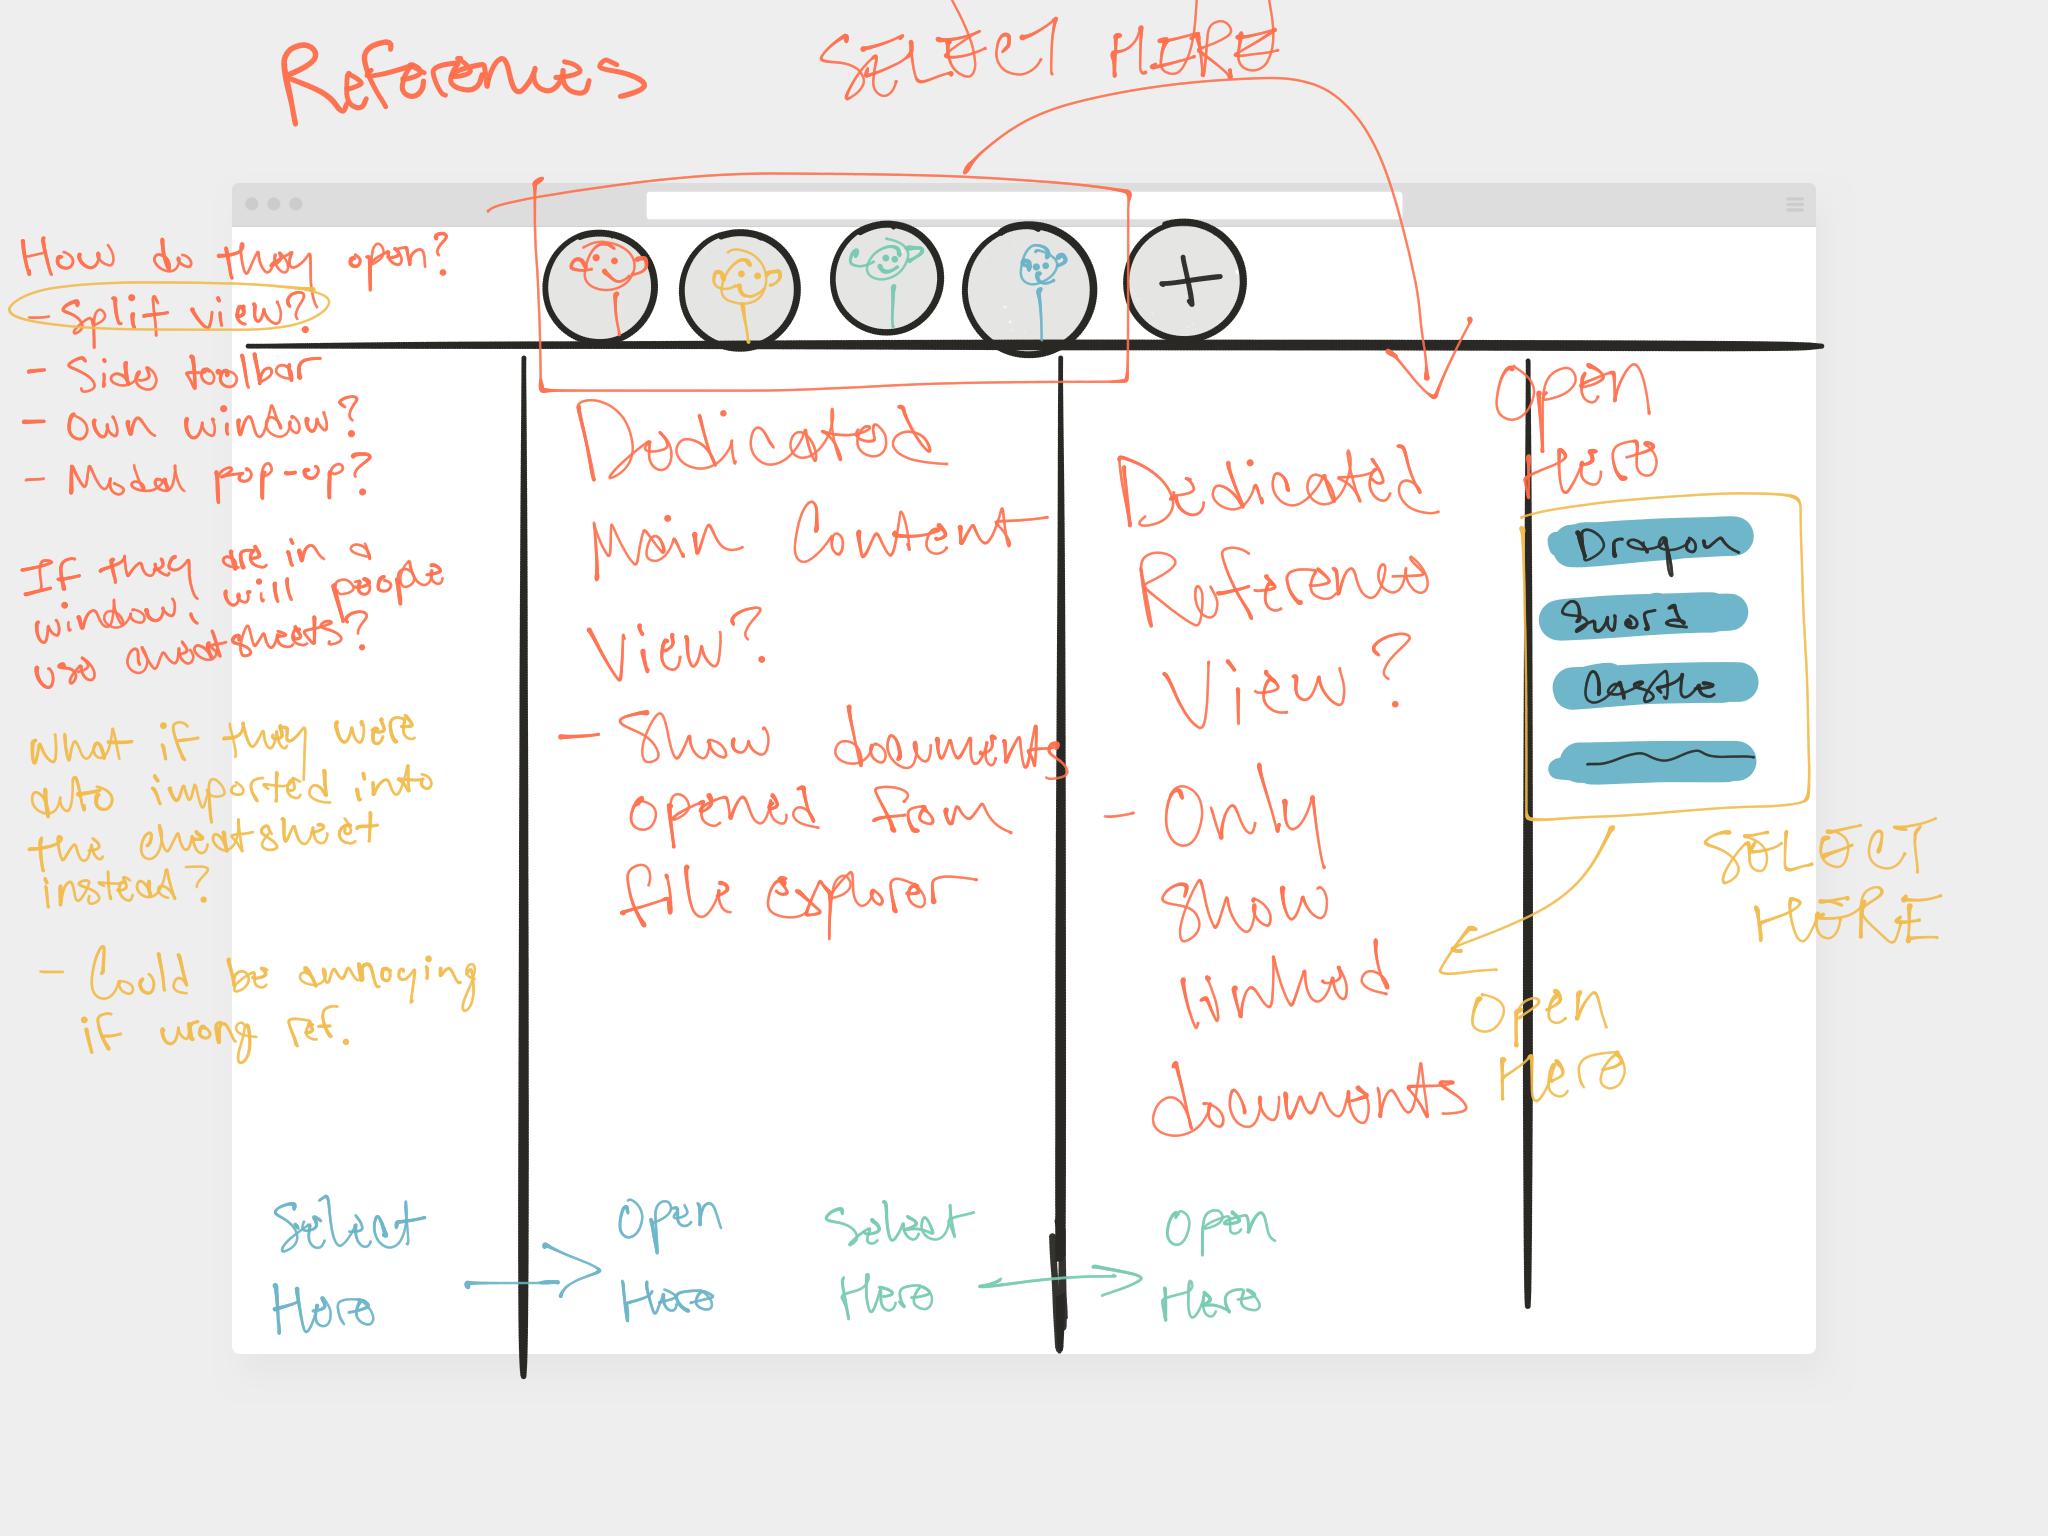 References
SELECT HERE
How do they open?
- Split view?
- Sides toolbar
- Own window?
- Modal pop-op?
If they are in a
window, will people
use cheatsheets?
What if they were
auto imported into
the cheatsheet
instead?
- Could be annoying
if wrong ref.
Select
Here
Dedicated
Main Content
View?
- Show documents
opened from
file explorer
Open
Here
Select
Here
Dedicated
Reference
View?
- Only
show
linked
documents
Open
Here
Open
Here
Dragon
Sword
Castle
SELECT
HERE
Open
Here